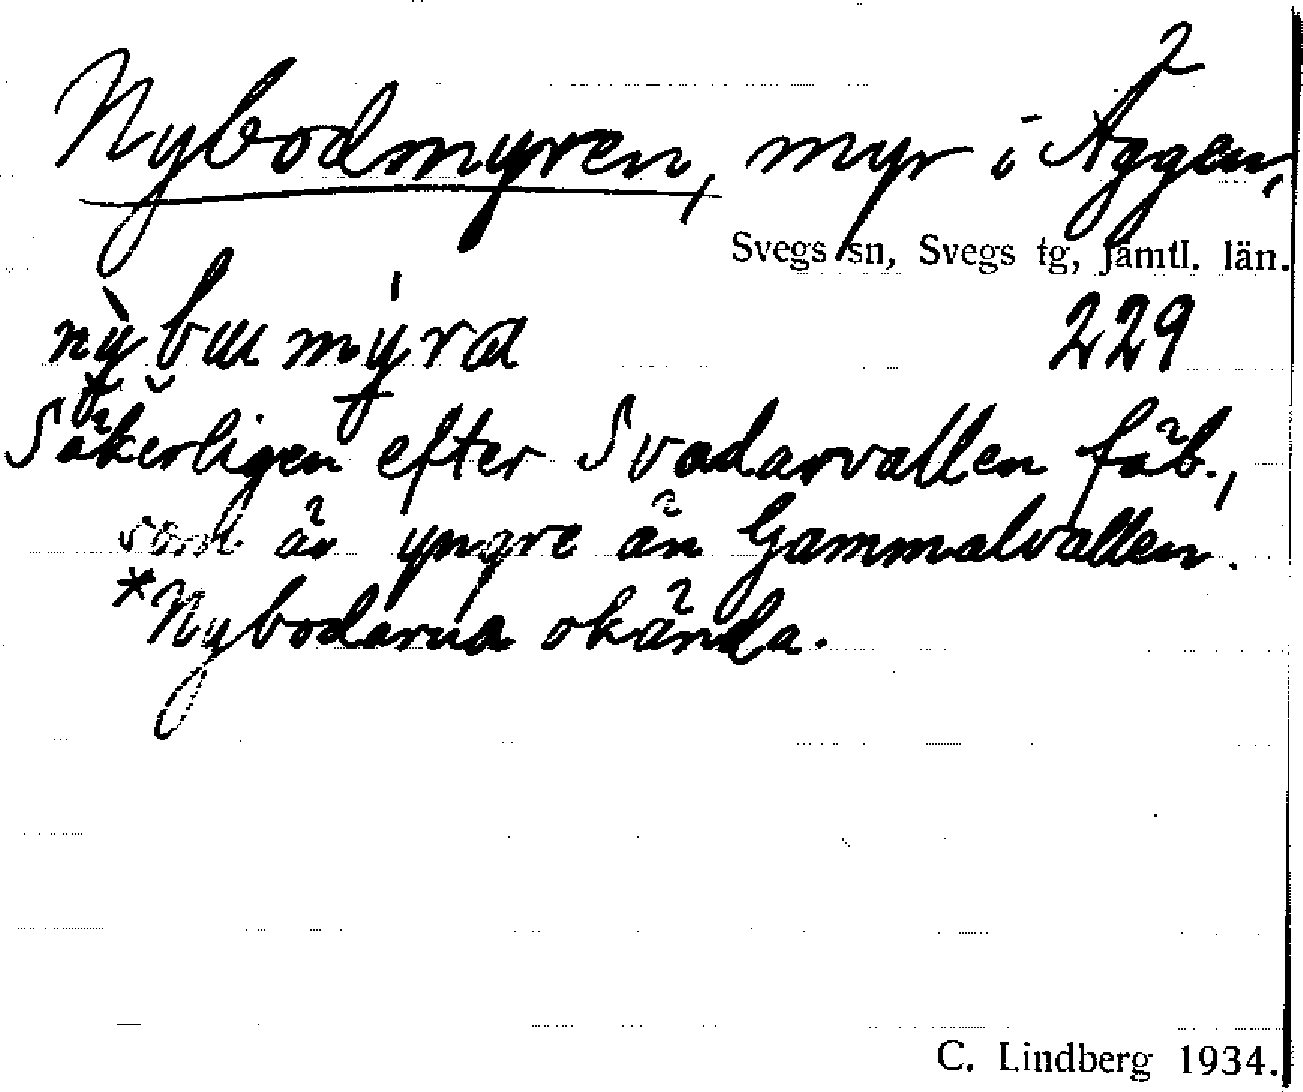 2
Nybodmyren, myr i Äggen,
Svegs sn, Svegs tg, Jämtl. län.
nỳbɯmýra 229
Säkerligen efter Svadarvallen fäb.,
som är yngre än Gammalvallen.
*Nybodarna okända.
C. Lindberg 1934.